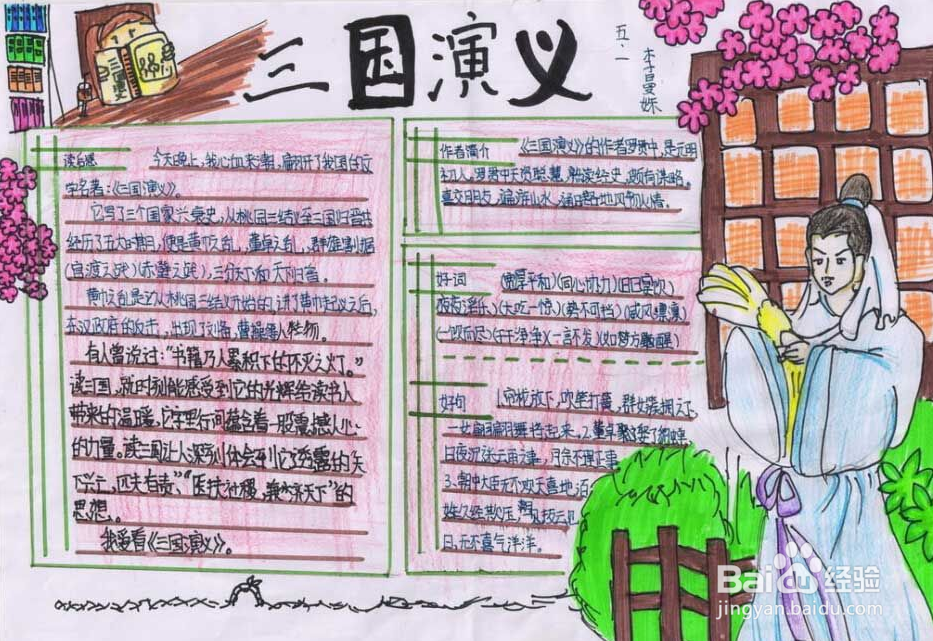 三国演义
五.二
李曼姝
三国
读后感
今天晚上,我心血来潮,翻开了我国的文
学名著:《三国演义》。
它写了三个国家兴衰史,从桃园三结义至三国归晋共
经历了五大时期,便是黄巾之乱、董卓之乱,群雄割据
(官渡之战)(赤壁之战),三分天下和天下归晋。
黄巾之乱是从桃园三结义开始的,讲了黄巾起义之后,
东汉政府的反击,出现了刘备、曹操等人物。
有人曾说过:"书籍乃人累积下的不灭之灯。"
读三国,就时刻能感受到它的光辉给读书人
带来的温暖,它字里行间蕴含着一股震撼人心
的力量。读三国让人深刻体会到它透露的"天
下兴亡,匹夫有责""医扶社稷,兼济天下"的
思想。
我爱看《三国演义》。
作者简介
《三国演义》的作者罗贯中,是元明
初人。罗贯中天资聪慧,熟读经史,颇有谋略。
喜交朋友,遍游山水,通晓各地风物人情。
好词
(宽厚平和)(同心协力)(日日宴饮)
夜夜淫乐)(大吃一惊)(势不可挡)(威风凛凛)
(一饮而尽)(干干净净)(一言不发)(如梦方醒)
好句
一女翩翩翩舞将起来。2.董卓
日夜沉
3.朝中大臣无不欢天喜地
姓久经欺压,
日,无不喜气洋洋。
Baidu经验
jingyan.baidu.com